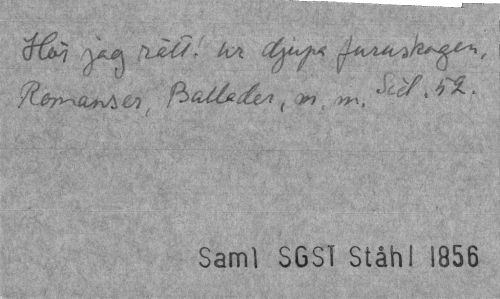 Hör jag rätt! ur djupa furuskogen,
Romanser, Ballader, m. m. Sid. 52.
Saml SGST Ståhl 1856